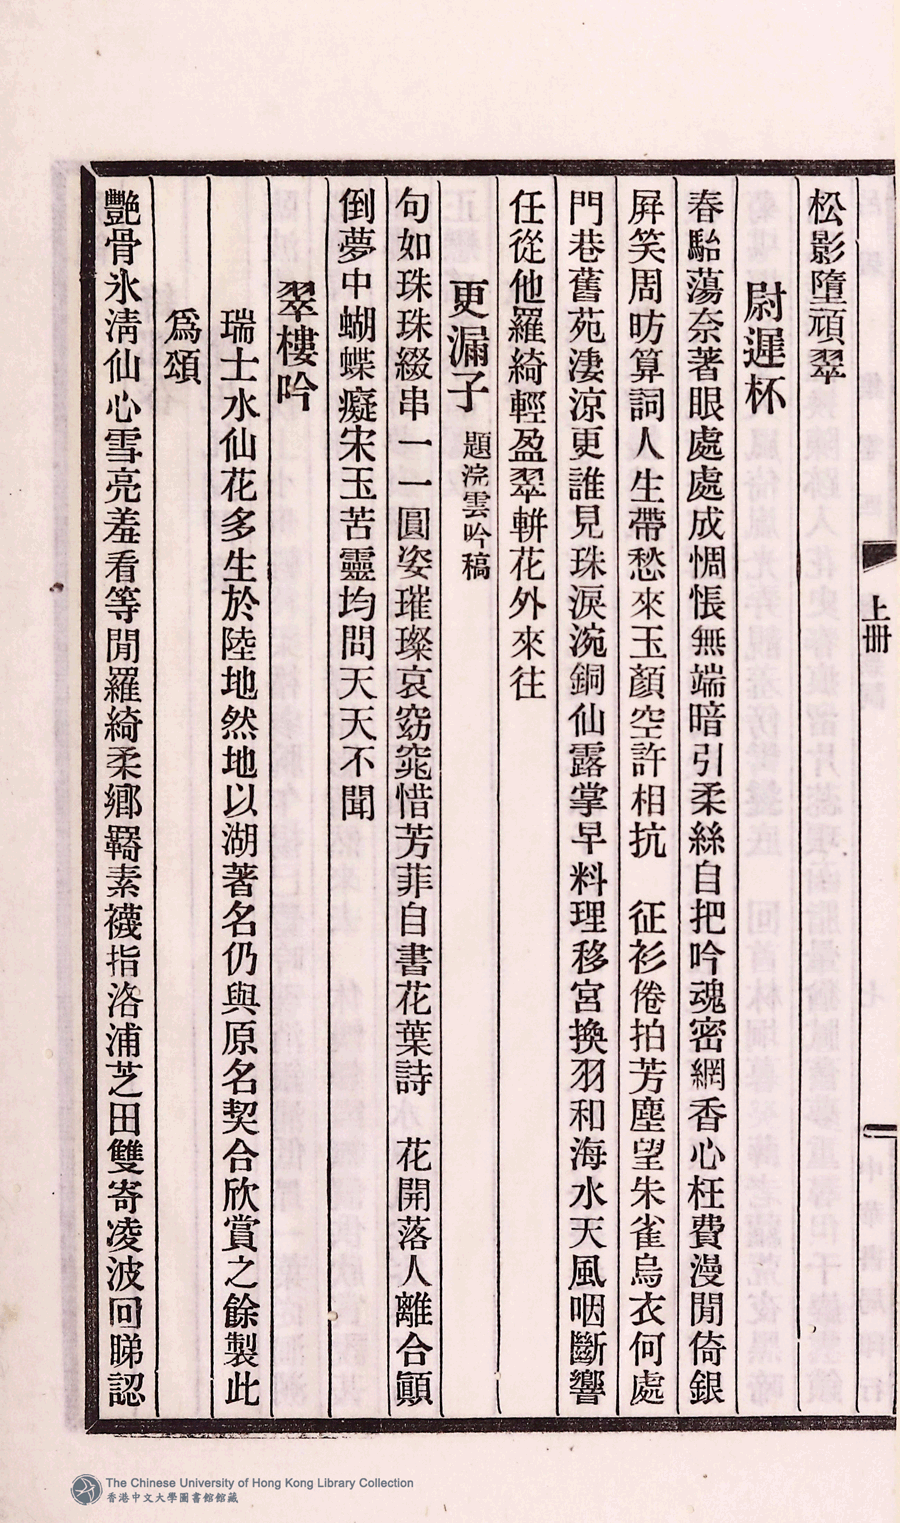 松影墮頑翠
尉遲杯
春駘蕩奈著眼處處成惆悵無端暗引柔絲自把吟魂密網香心枉費漫閒倚銀
屛笑周昉算詞人生帶愁來玉顏空許相抗　征衫倦拍芳塵望朱雀烏衣何處
門巷舊苑淒涼更誰見珠淚涴銅仙露掌早料理移宮換羽和海水天風咽斷響
任從他羅綺輕盈翠軿花外來往
更漏子 題浣雲吟稿
句如珠珠綴串一一圓姿璀璨哀窈窕惜芳菲自書花葉詩　花開落人離合顚
倒夢中蝴蝶癡宋玉苦靈均問天天不聞
翠樓吟
瑞士水仙花多生於陸地然地以湖著名仍與原名契合欣賞之餘製此
爲頌
艷骨氷淸仙心雪亮羞看等閒羅綺柔鄕羇素襪指洛浦芝田雙寄凌波回睇認
上册
The Chinese University of Hong Kong Library Collection
香港中文大學圖書館館藏